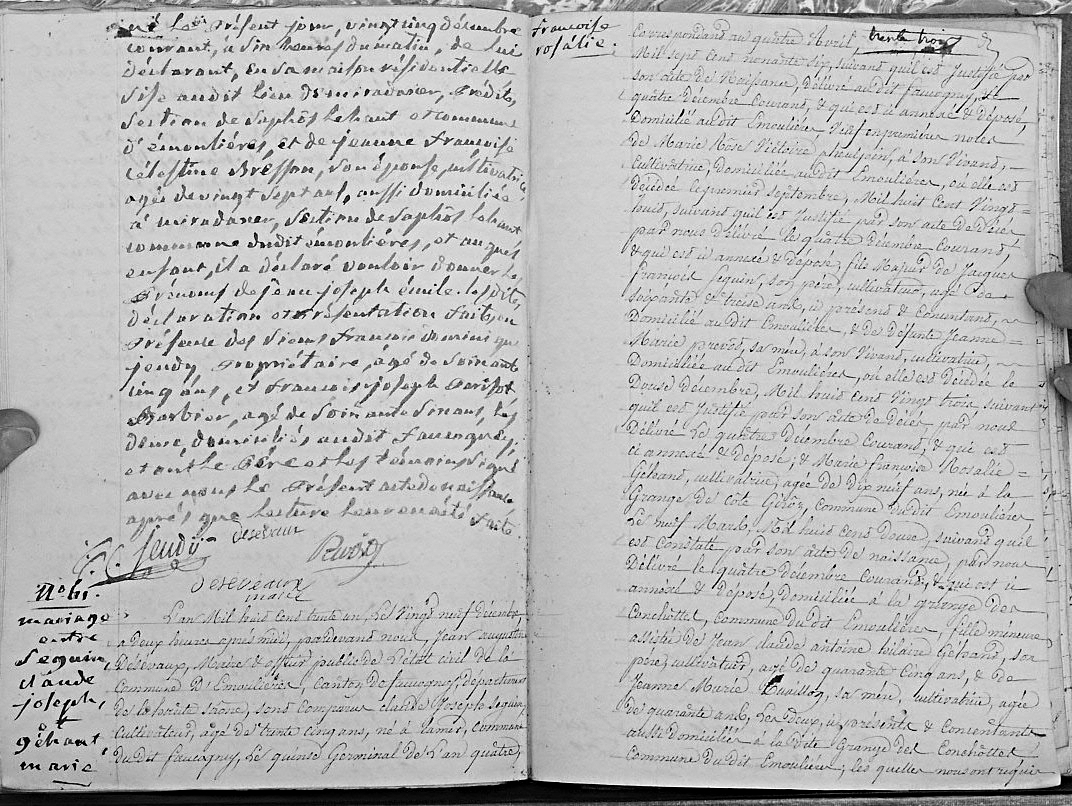 né le présent jour, vingt cinq décembre
courant, à six heures du matin, de lui
déclarant, en sa maison résidentielle
sise audit lieu de miradaner, predite
section de Saphos le haut et commune
d'émoulières, et de jeanne françoise
célestine Bresson, son épouse, cultivatrice
agée de vingt sept ans, aussi domiciliée
à miradaner, section de Saphos le haut
commune dudit émoulières, et auquel
enfant, il a déclaré vouloir donner les
prénoms de jean joseph émile. les dites
déclaration et présentation faites en
présence des sieurs françois dominique
jeudy, propriétaire, agé de soixante
cinq ans, et françois joseph parisot
Barbier, agé de soixante six ans, les
deux, domiciliés audit faucogney,
et ont le père et les témoins signé
avec nous le présent acte de naissance
après que lecture leur en a été faite.
Jeudy
desevaux
maire
N° 61.
mariage
entre
Seguin,
claude
joseph,
et
géhant,
marie
L'an Mil huit cent trente un, Le Vingt neuf décembre
a deux heures apres midi, pardevant nous, Jean augustin
Désévaux, Maire & officier public de l'état civil de la
Commune d'Emoulières, Canton de faucogney, departement
de la haute saone, sont Comparus claude Joseph Seguin,
Cultivateur, agé de trente cinq ans, né à Lamer, Commune
du dit faucogney, Le quinze Germinal de L'an quatre,
françoise
rosalie.
Correspondant au quatre Avril, trente trois
Mil sept cent nonante six, suivant qu'il est Justifié par
son acte de Naissance, Délivré au dit faucogney, Le
quatre décembre Courant, & qui est ci annexé & déposé,
Domicilié au dit Emoulières, Veuf en premières notes
De Marie Rose Victoire, à son Vivant,
Cultivatrice, Domiciliée au dit Emoulières, où elle est
décédée le premier septembre, Mil huit Cent Vingt
huit, suivant qu'il est Justifié par son acte de Décès
par nous Délivré le quatre Décembre Courant,
& qui est ci annexé & déposé; fils Majeur de Jacques
françois Seguin, son père, cultivateur, agé de
soixante et treize ans, ci présent & Consentant,
Domicilié au dit Emoulières, & de Défunte Jeanne
Marie prevot, sa mère, à son Vivant, cultivatrice,
Domiciliée au dit Emoulières, où elle est Décédée le
Douze décembre, Mil huit Cent Vingt trois, suivant
qu'il est Justifié par son acte de Décès, par nous
Délivré Le quatre Décembre Courant, & qui est
ci annexé & Déposé; & Marie françoise Rosalie
Géhant, cultivatrice, agée de Dix neuf ans, née à la
Grange de Cote Giroz, Commune du dit Emoulières,
Le neuf Mars Mil huit Cent Douze, suivant qu'il
est Constaté par son acte de naissance, par nous
Délivré le quatre Décembre Courant, & qui est ci
annexé & Déposé, Domiciliée à la grange des
Conchottes, Commune du dit Emoulières, fille mineure
assistée de Jean claude antoine hilaire Gehant, son
père, cultivateur, agé de quarante Cinq ans, & de
Jeanne Marie sa mère, cultivatrice, agée
de quarante ans, Les Deux, ci présents & Consentants
aussi Domiciliés à la dite Grange des Conchottes
Commune du dit Emoulières; les quelles nous ont requis